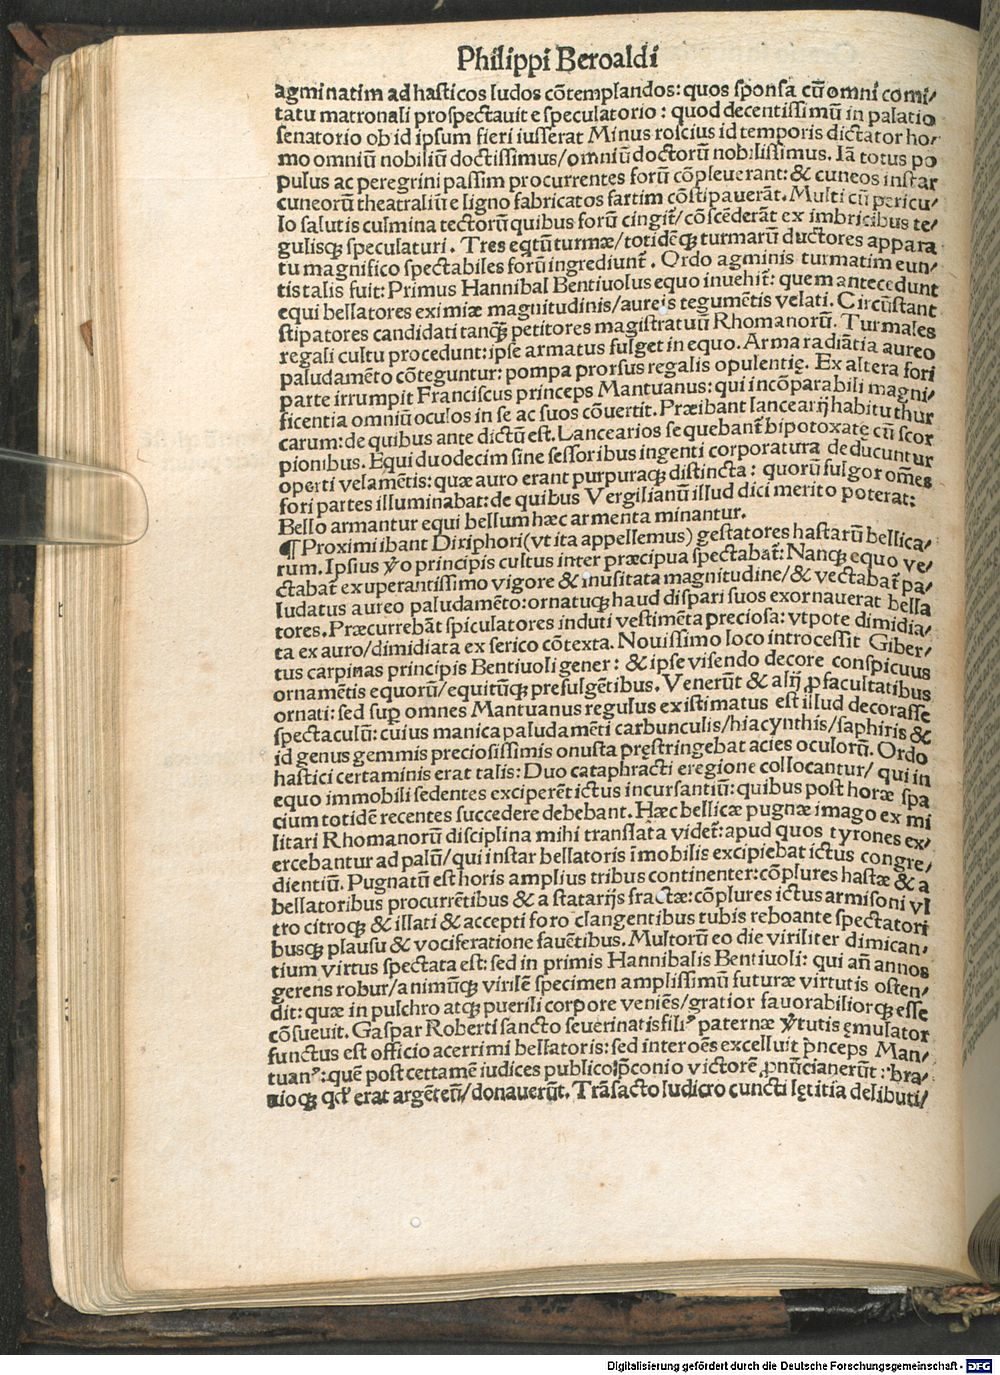 Philippi Beroaldi
agminatim ad hasticos ludos cõtemplandos: quos sponsa cũ omni comi/
tatu matronali prospectauit e speculatorio: quod decentissimũ in palatio
senatorio ob id ipsum fieri iusserat Minus roscius id temporis dictator ho/
mo omniũ nobiliũ doctissimus/omniũ doctorũ nobilissimus. Iã totus po
pulus ac peregrini passim procurrentes forũ cõpleuerant: & cuneos instar
cuneorũ theatraliũ e ligno fabricatos fartim cõstipauerãt. Multi cũ pericu/
lo salutis culmina tectorũ quibus forũ cingit̃/cõscẽderãt ex imbricibus te/
gulisq; speculaturi. Tres eqtũ turmæ/totidẽq; turmarũ ductores appara
tu magnifico spectabiles forũ ingrediunt̃. Ordo agminis turmatim eun/
tis talis fuit: Primus Hannibal Bentiuolus equo inuehit̃: quem antecedunt
equi bellatores eximiæ magnitudinis/aureis tegumẽtis velati. Circũstant
stipatores candidati tanq̃ petitores magistratuũ Rhomanorũ. Turmales
regali cultu procedunt: ipse armatus fulget in equo. Arma radiãtia aureo
paludamẽto cõteguntur: pompa prorsus regalis opulentię. Ex altera fori
parte irrumpit Franciscus princeps Mantuanus: qui incõparabili magni/
ficentia omniũ oculos in se ac suos cõuertit. Præibant lancearij habitu thur
carum: de quibus ante dictũ est. Lancearios sequebant̃ hipotoxatę cũ scor
pionibus. Equi duodecim sine sessoribus ingenti corporatura deducuntur
operti velamẽtis: quæ auro erant purpuraq; distincta: quorũ fulgor om̃es
fori partes illuminabat: de quibus Vergilianũ illud dici merito poterat:
Bello armantur equi bellum hæc armenta minantur.
¶ Proximi ibant Diriphori (vt ita appellemus) gestatores hastarũ bellica/
rum. Ipsius ꝟo principis cultus inter præcipua spectabat̃: Nanq; equo ve/
ctabat̃ exuperantissimo vigore & inusitata magnitudine/& vectabat̃ pa/
ludatus aureo paludamẽto: ornatuq; haud dispari suos exornauerat bella
tores. Præcurrebãt spiculatores induti vestimẽta preciosa: vtpote dimidia/
ta ex auro/dimidiata ex serico cõtexta. Nouissimo loco introcessit Giber/
tus carpinas principis Bentiuoli gener: & ipse visendo decore conspicuus
ornamẽtis equorũ/equitũq; presulgẽtibus. Venerũt & alij ꝓ facultatibus
ornati: sed sup omnes Mantuanus regulus existimatus est illud decorasse
spectaculũ: cuius manica paludamẽti carbunculis/hiacynthis/saphiris &
id genus gemmis preciosissimis onusta pręstringebat acies oculorũ. Ordo
hastici certaminis erat talis: Duo cataphracti e regione collocantur/ qui in
equo immobili sedentes exciperẽt ictus incursantiũ: quibus post horæ spa
cium totidẽ recentes succedere debebant. Hæc bellicæ pugnæ imago ex mi
litari Rhomanorũ disciplina mihi translata videt̃: apud quos tyrones ex/
ercebantur ad palũ/qui instar bellatoris ĩmobilis excipiebat ictus congre/
dientiũ. Pugnatũ est horis amplius tribus continenter: cõplures hastæ & a
bellatoribus procurrẽtibus & a statarijs fractæ: cõplures ictus armisoni vl
tro citroq; & illati & accepti foro clangentibus tubis reboante spectatori
busq; plausu & vociferatione fauẽtibus. Multorũ eo die viriliter dimican/
tium virtus spectata est: sed in primis Hannibalis Bentiuoli: qui añ annos
gerens robur/animũq; virilẽ specimen amplissimũ futuræ virtutis osten/
dit: quæ in pulchro atq; puerili corpore veniẽs/gratior fauorabiliorq; esse
cõsueuit. Gaspar Roberti sancto seuerinatis filiꝰ paternæ ꝟtutis ęmulator
functus est officio acerrimi bellatoris: sed inter oẽs excelluit p̃nceps Man/
tuanꝰ: quẽ post certamẽ iudices publico p̃conio victorẽ ꝓnũcianerũt: bra/
uioq; qd̃ erat argẽteũ/donauerũt. Trãsacto ludicro cuncti lętitia delibuti/
Digitalisierung gefördert durch die Deutsche Forschungsgemeinschaft - DFG